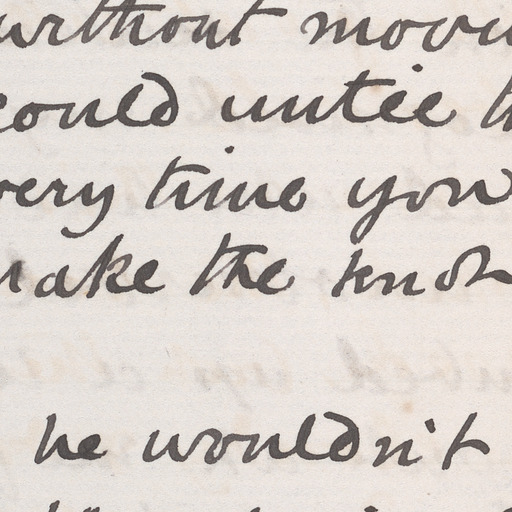 without mov
could untie th
very time you
make the knot
he wouldn't